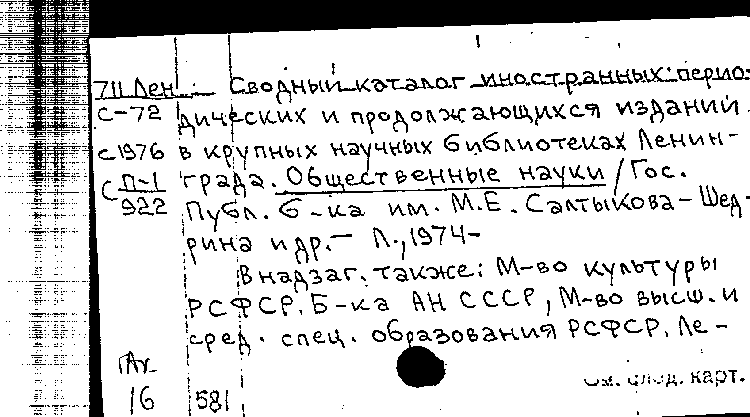 711 Лен. Сводный каталог иностранных перио-
С-72 дических и продолжающихся изданий
с1976 в крупных научных библиотеках Ленин-
С П-1/922 града. Общественные науки / Гос.
Публ. б-ка им. М.Е. Салтыкова-Щед-
рина и др. – Л., 1974-
В надзаг. также: М-во культуры
РСФСР. Б-ка АН СССР, М-во высш. и
сред. спец. образования РСФСР. Ле-
См. след. карт.
16 581